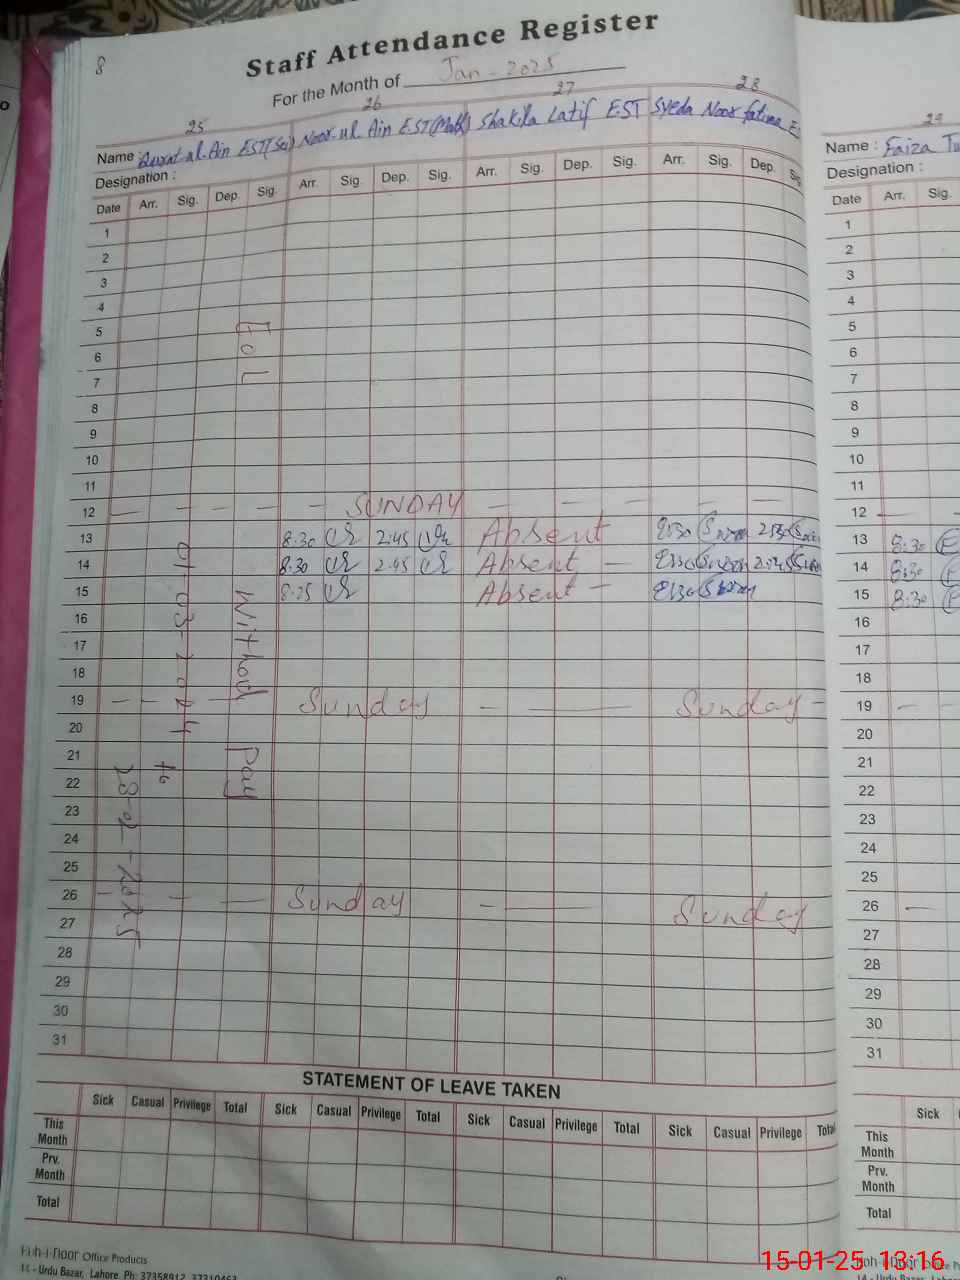 8
Staff Attendance Register
For the Month of Jan-2025
25 26 27 28 29
Name : ul-Ain EST(Sci) Noor ul Ain EST(Math) Shakila Latif EST Syeda Noor fatima Name : Faiza
Designation : Designation :
Date Arr. Sig. Dep. Sig. Arr. Sig. Dep. Sig. Arr. Sig. Dep. Sig. Arr. Sig. Dep. Sig. Date Arr. Sig.
1 1
2 2
3 3
4 4
5 5
6 6
7 7
8 8
9 9
10 10
11 11
12 SUNDAY 12
13 8:30 2:45 Absent 8:30 13 8:30
14 8:30 2:45 Absent 8:30 14 8:30
15 8:25 Absent 8:30 15 8:30
16 16
17 17
18 18
19 Sunday Sunday 19
20 20
21 21
22 22
23 23
24 24
25 25
26 Sunday Sunday 26
27 27
28 28
29 29
30 30
31 31
EoL Without Pay
01-03-2024 to
28-02-2025
STATEMENT OF LEAVE TAKEN
Sick Casual Privilege Total Sick Casual Privilege Total Sick Casual Privilege Total Sick Casual Privilege Total Sick
This Month This Month
Prv. Month Prv. Month
Total Total
Koh-i-noor Office Products Koh-i-noor Office
14 - Urdu Bazar, Lahore. Ph: 37358912, 37310463 14 - Urdu Bazar
15-01-25 13:16